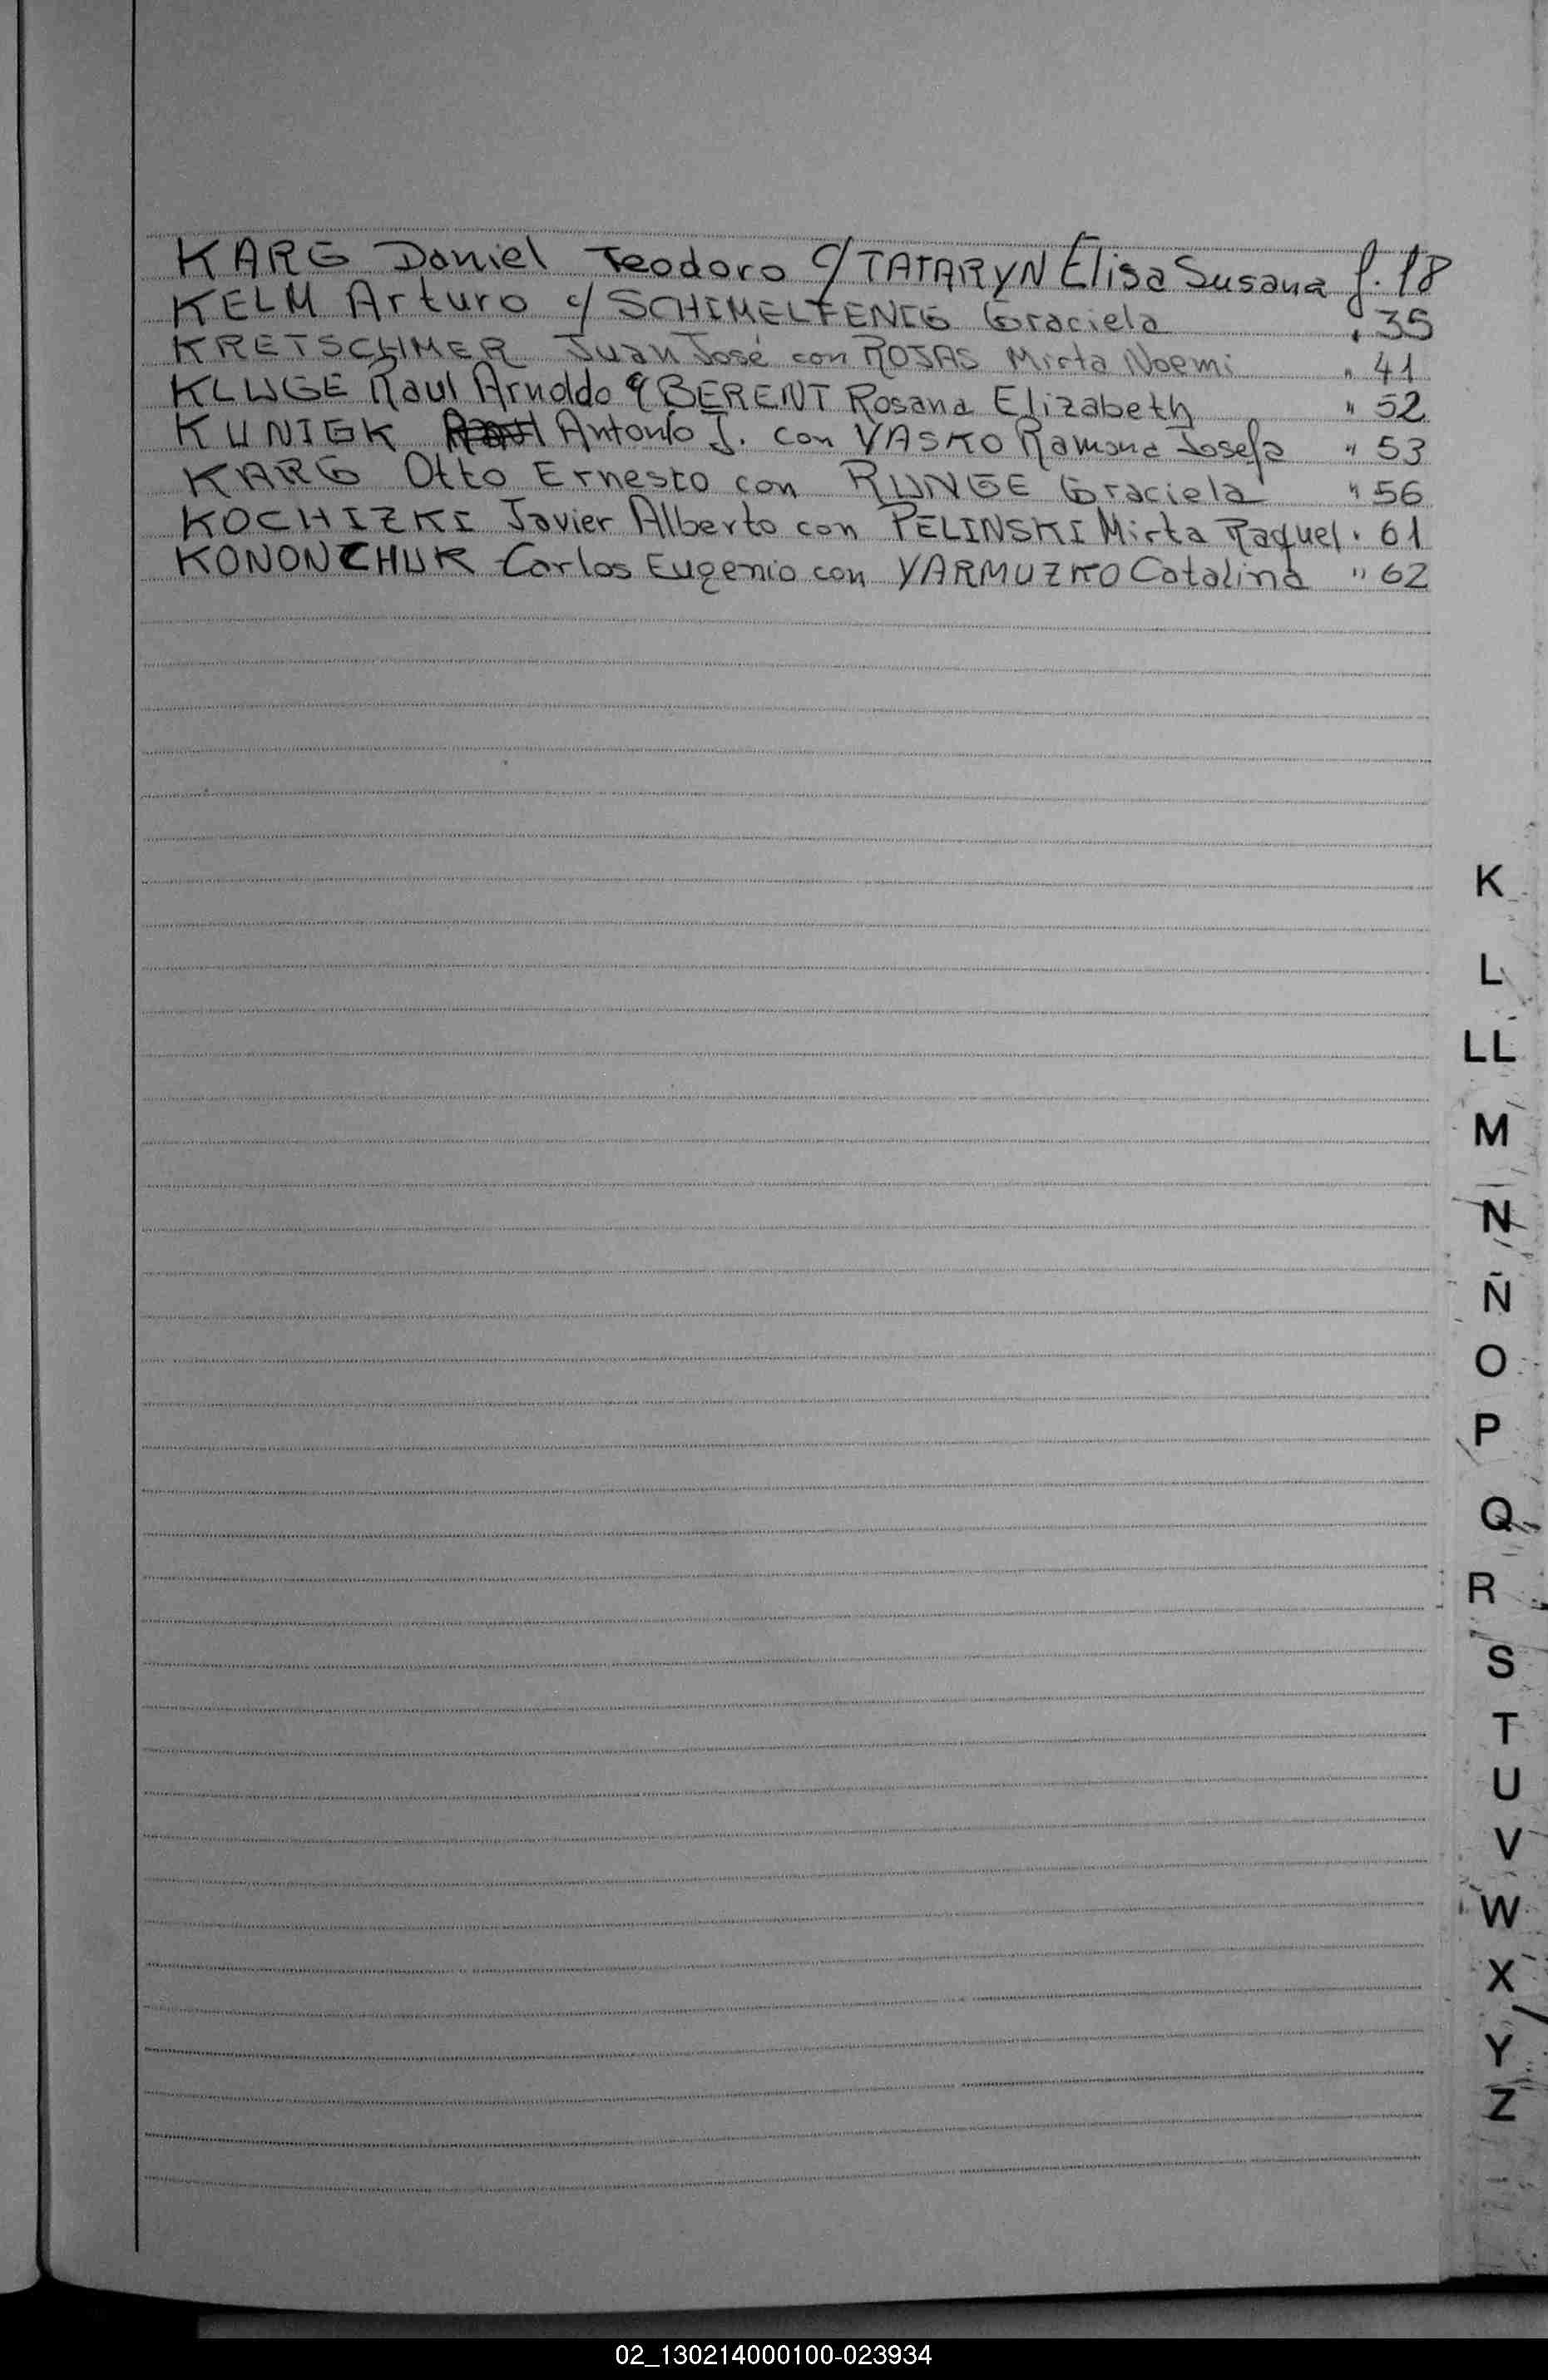 KARG Daniel Teodoro c/ TATARYN Elisa Susana f. 18
KELM Arturo c/ SCHIMELFENIG Graciela " 35
KRETSCHMER Juan José con ROJAS Mirta Noemi " 41
KLUGE Raul Arnoldo c/ BERENT Rosana Elizabeth " 52
KUNIGK Antonio J. con YASKO Ramona Josefa " 53
KARG Otto Ernesto con RUNGE Graciela " 56
KOCHIZKI Javier Alberto con PELINSKI Mirta Raquel " 61
KONONCHUK Carlos Eugenio con YARMUZKO Catalina " 62
K
L
LL
M
N
Ñ
O
P
Q
R
S
T
U
V
W
X
Y
Z
02_130214000100-023934